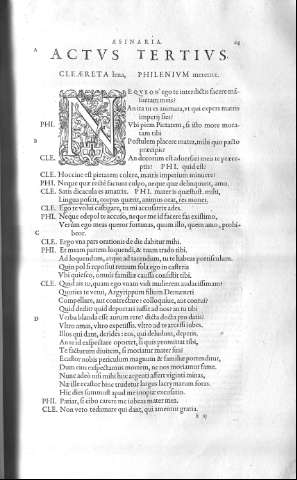 ASINARIA.
A
ACTVS TERTIVS.
CLEÆRETA lena, PHILENIVM meretrix.
NEQVEON' ego te interdictis facere mansuetam meis?
An ita tu es animata, ut qui expers matris
imperij sies?
PHI. Vbi piem Pietatem, si isto more moratam tibi
B
Postulem placere mater, mihi quo pacto
præcipis?
CLE. An decorum est aduersari meis te præceptis? PHI. quid est?
CLE. Hoccine est pietatem colere, matris imperium minuere?
PHI. Neque quæ recte faciunt culpo, neque quæ delinquunt, amo.
CLE. Satis dicacula es amatrix. PHI. mater is quæstus est mihi,
Lingua poscit, corpus quærit, animus orat, res monet.
CLE. Ego te volui castigare, tu mi accusatrix ades.
PHI. Neque edepol te accuso, neque me id facere fas existimo,
Verùm ego meas queror fortunas, quum illo, quem amo, prohibeor.
C
CLE. Ergo vna pars orationis de die dabitur mihi.
PHI. Et meam partem loquendi, & tuam trado tibi,
Ad loquendum, atque ad tacendum, tu te habeas portisculum.
Quin pol si reposiui remum sola ego in casteria
Vbi quiesco, omnis familiæ caussa consistit tibi.
CLE. Quid ais tu, quam ego vnam vidi mulierem audacissimam?
Quoties te vetui, Argyrippum filium Demæneti
Compellare, aut contrectare, colloquiue, aut contui?
Quid dedit? quid deportari iussit ad nos?
D
Verba blanda esse aurum rere? dicta docta pro datis?
Vltro amas, vltro expetessis, vltro ad te accersi iubes.
Illos qui dant, derides: eos, qui deludunt, deperis.
An te id expectare oportet, si quis promittat tibi,
Te facturum diuitem, si moriatur mater sua?
Ecastor nobis periculum magnum & familiæ portenditur,
Dum eius expectamus mortem, ne nos moriamur fame.
Nunc adeò nisi mihi huc argenti affert viginti minas,
Næ ille ecastor hinc trudetur largus lacrymarum foras.
Hic dies summus est apud me inopiæ excusatio.
PHI. Patiar, si cibo carere me iubeas mater mea.
CLE. Non veto te amare qui dant, qua amentur gratia.